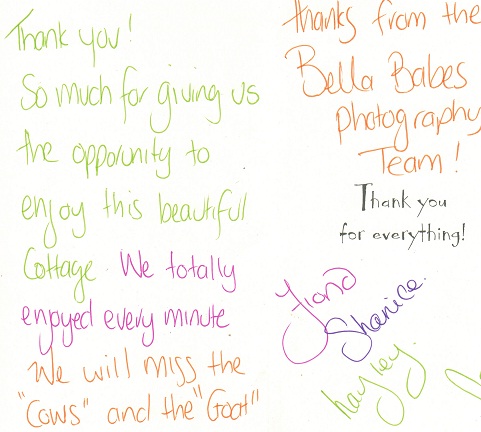 Thank you!
So much for giving us
the opporunity to
enjoy this beautiful
Cottage We totally
enjoyed every minute
We will miss the
"Cows" and the "Goat"
thanks from the
Bella Babes
photography
Team!
Thank you
for everything!
Fiona
Shanice.
hayley.